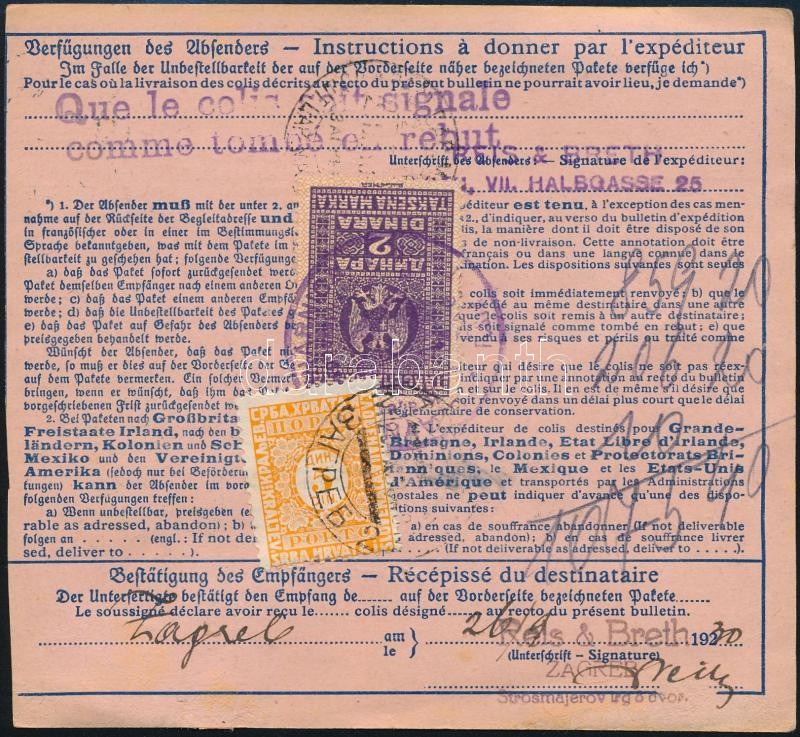 Verfügungen des Absenders – Instructions à donner par l'expéditeur
Im Falle der Unbestellbarkeit der auf der Vorderseite näher bezeichneten Pakete verfüge ich*)
Pour le cas où la livraison des colis décrits au recto du présent bulletin ne pourrait avoir lieu, je demande*)
Que le colis soit signale
comme tombé en rebut.
REIS & BRETH
Unterschrift des Absenders: – Signature de l'expéditeur:
VII. HALBGASSE 25
*) 1. Der Absender muß mit der unter 2. an
nahme auf der Rückseite der Begleitadresse und
in französischer oder in einer im Bestimmungsl
Sprache bekanntgeben, was mit dem Pakete im
stellbarkeit zu geschehen hat; folgende Verfügung
a) daß das Paket sofort zurückgesendet werde
Paket demselben Empfänger nach einem anderen
werde; c) daß das Paket einem anderen Empfän
werde; d) daß die Unbestellbarkeit des Paketes
e) daß das Paket auf Gefahr des Absenders
preisgegeben behandelt werde.
Wünscht der Absender, daß das Paket ni
werde, so muß er dies auf der Vorderseite der Be
auf dem Pakete vermerken. Ein solcher Vermerk
werden, wenn er wünscht, daß ihm das
vorgeschriebenen Frist zurückgesendet werde.
2. Bei Paketen nach Großbrita
Freistaate Irland, nach den
ländern, Kolonien und Sch
Mexiko und den Vereinigte
Amerika (jedoch nur bei Beförder
tungen) kann der Absender im vora
folgenden Verfügungen treffen:
a) Wenn unbestellbar, preisgeben (e
rable as adressed, abandon); b)
folgen an ...... (engl.: If not deli
sed, deliver to ......).
péditeur est tenu, à l'exception des cas men-
2., d'indiquer, au verso du bulletin d'expédition
lis, la manière dont il doit être disposé de son
s de non-livraison. Cette annotation doit être
français ou dans une langue connue dans le
ination. Les dispositions suivantes sont seules
colis soit immédiatement renvoyé; b) que le
expédié au même destinataire dans une autre
que le colis soit remis à un autre destinataire;
lis soit signalé comme tombé en rebut; e) que
vendu à ses risques et périls ou traité comme
xpéditeur qui désire que le colis ne soit pas réex-
indiquer par une annotation au recto du bulletin
et sur le colis. Il en est de même s'il désire
soit renvoyé dans un délai plus court que le délai
réglementaire de conservation.
L'expéditeur de colis destinés pour Grande-
Bretagne, Irlande, Etat Libre d'Irlande,
Dominions, Colonies et Protectorats Bri-
tanniques, le Mexique et les Etats-Unis
d'Amérique et transportés par les Administrations
postales ne peut indiquer d'avance qu'une des dispo-
sitions suivantes:
a) en cas de souffrance abandonner (If not deliverable
as adressed, abandon); b) en cas de souffrance livrer
à ...... (If not deliverable as adressed, deliver to ......).
TAKSENA MARKA
DINARA
2
ДИНАРА
СРБА ХРВАТА
ПОРТО
PORTO
ЗАГРЕБ
Bestätigung des Empfängers – Récépissé du destinataire
Der Unterfertigte bestätigt den Empfang de...... auf der Vorderseite bezeichneten Pakete
Le soussigné déclare avoir reçu le...... colis désigné ...... au recto du présent bulletin.
Zagreb am le } 1930
Reis & Breth
(Unterschrift – Signature)
ZAGREB
Strosmajerov trg
darabanth